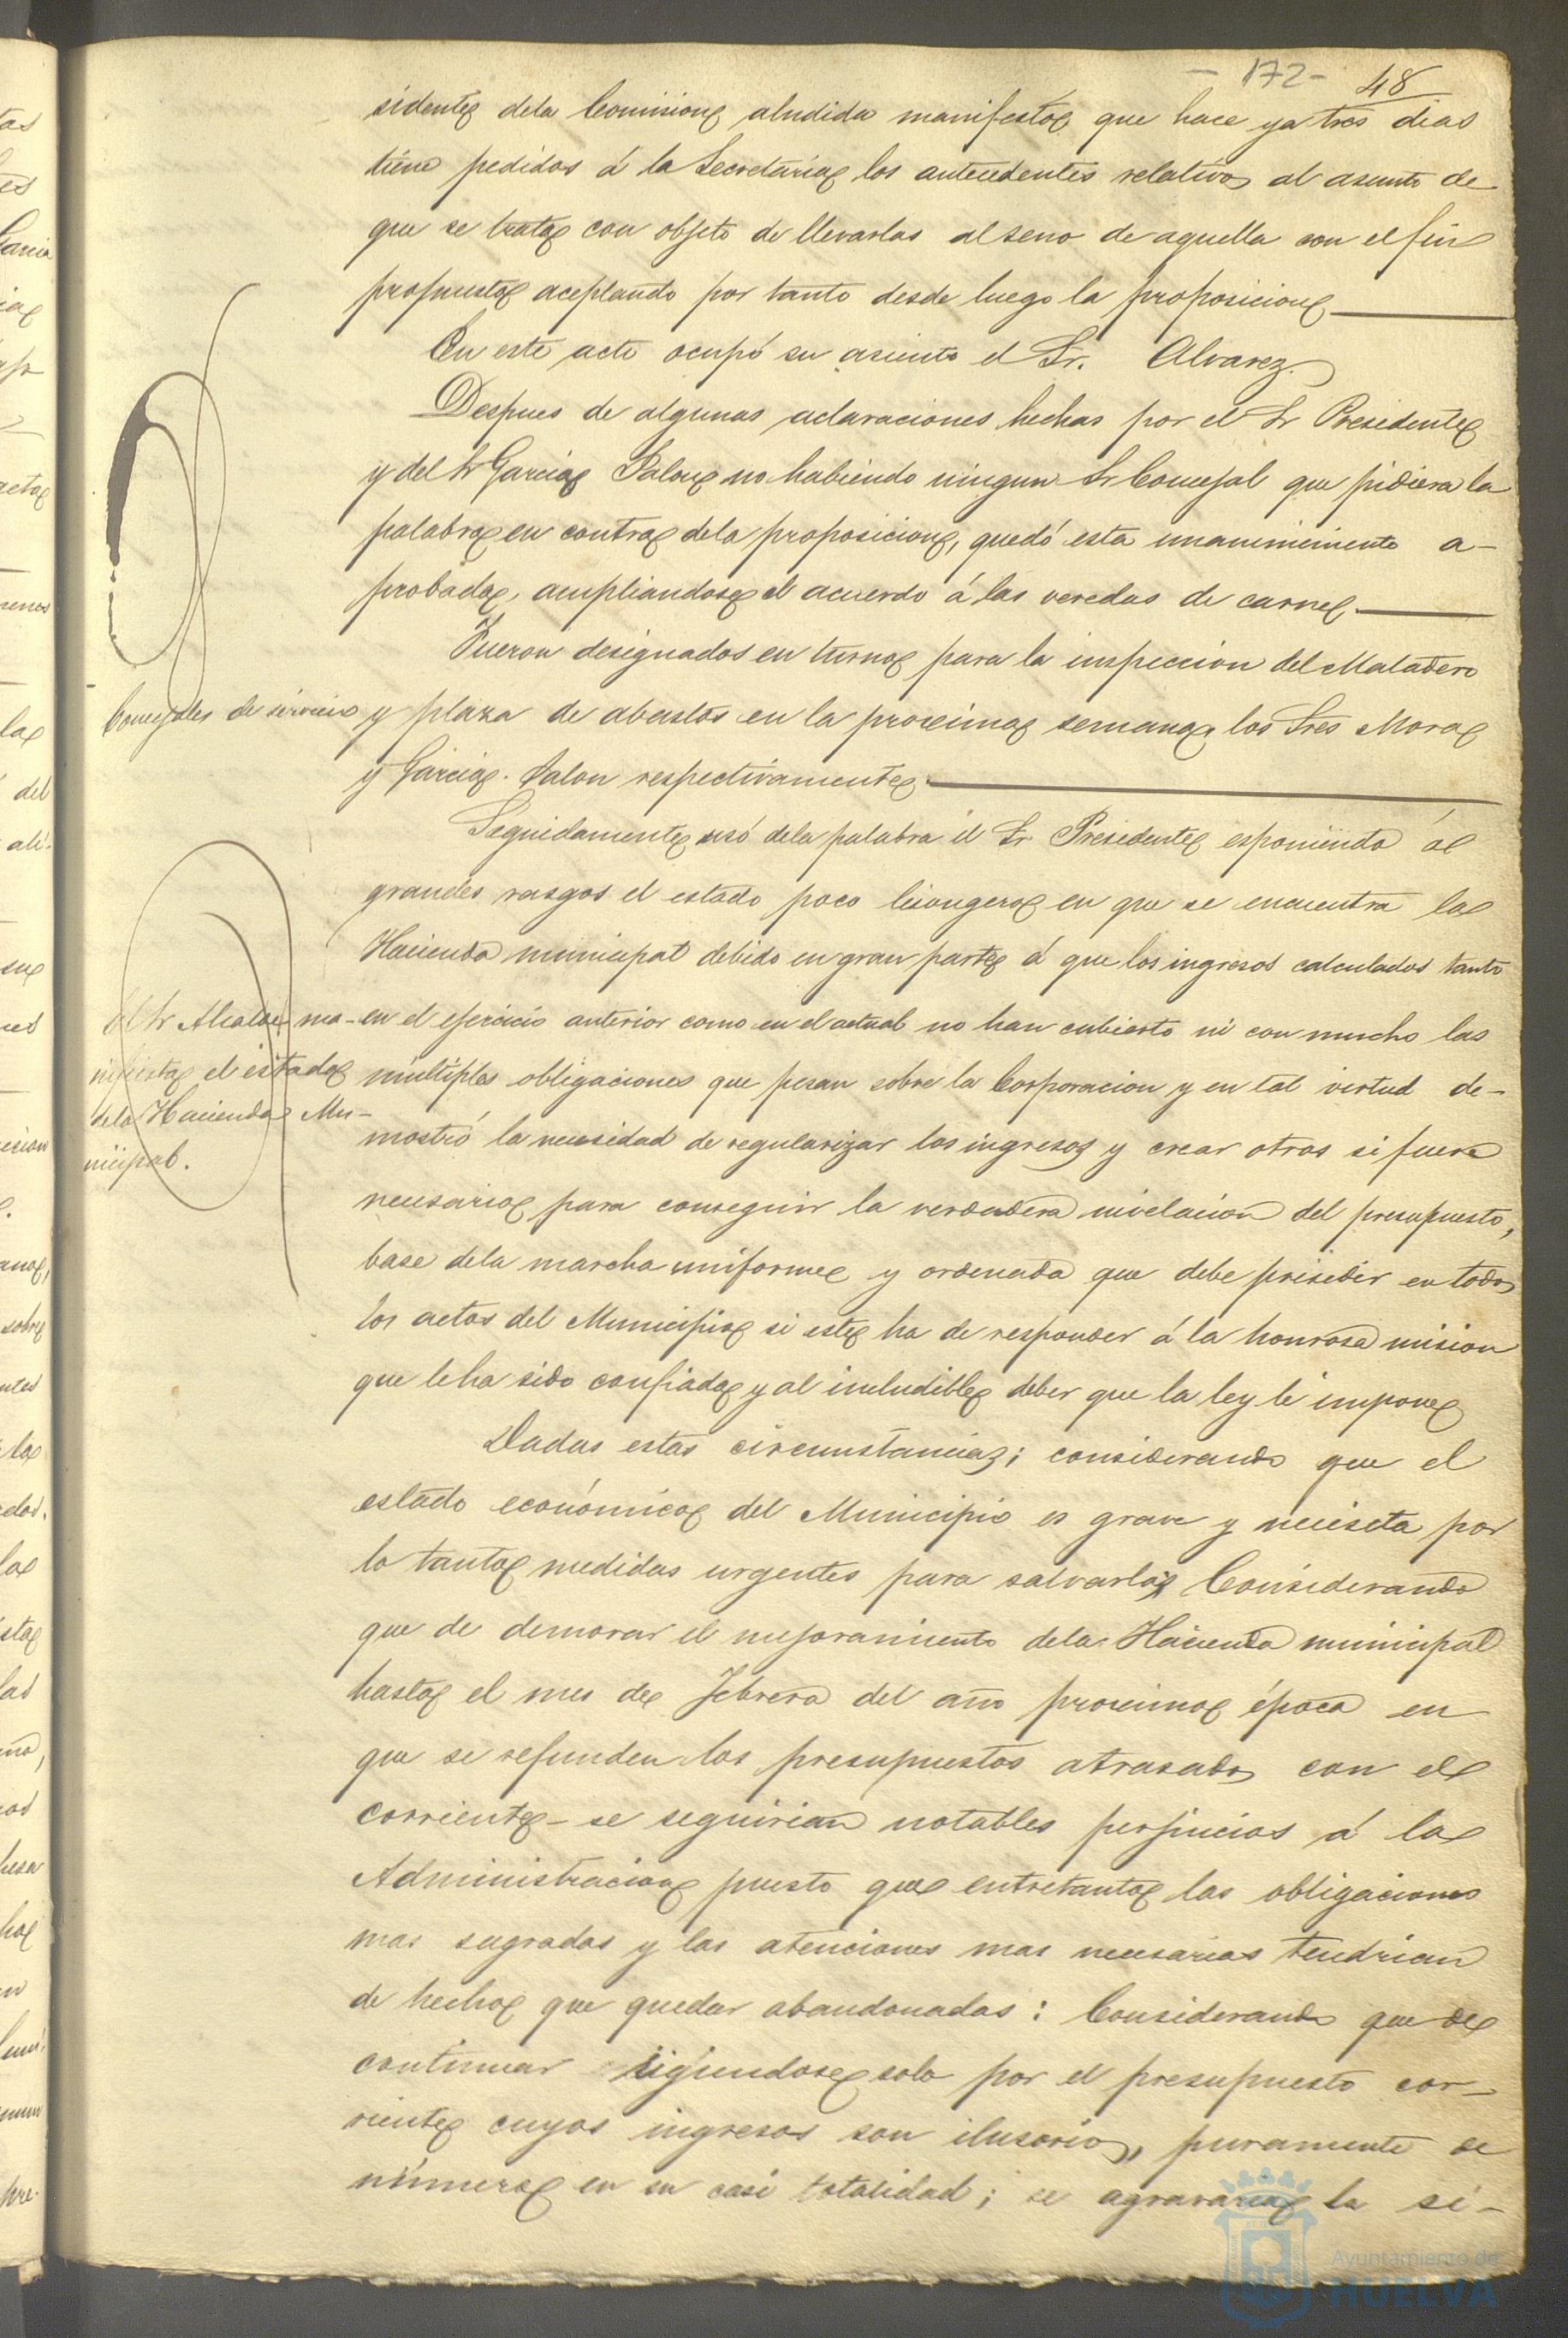 - 172 - 48
sidente dela Comision aludida manifesto que hace ya tres dias
tiene pedidos á la Secretaria los antecedentes relativos al asunto de
que se trata con objeto de llevarlos al seno de aquella con el fin
propuesto aceptando por tanto desde luego la proposicion
En este acto ocupó su asiento el Sr. Alvarez.
Despues de algunas aclaraciones hechas por el Sr Presidente
y del Sr Garcia Salon no habiendo ningun Sr Concejal que pidiera la
palabra en contra dela proposicion, quedó esta unanimimente a-
probada, ampliandose el acuerdo á las veredas de carne
Fueron designados en turno para la inspeccion del Matadero
Concejales de servicio
y plaza de abastos en la proxima semana los Sres Mora
y Garcia Salon respectivamente
Seguidamente usó dela palabra el Sr Presidente esponiendo á
grandes rasgos el estado poco lisongero en que se encuentra la
Hacienda municipal debido en gran parte á que los ingresos calculados tanto
El Sr Alcalde ma-
nifiesta el estado
dela Hacienda Mu-
nicipal.
en el ejercicio anterior como en el actual no han cubierto ni con mucho las
multiples obligaciones que pesan sobre la Corporacion y en tal virtud de-
mostró la necesidad de regularizar los ingresos y crear otros si fuera
necesario para conseguir la verdadera nivelacion del presupuesto,
base dela marcha uniforme y ordenada que debe presidir en todos
los actos del Municipio si este ha de responder á la honrosa mision
que le ha sido confiada y al ineludible deber que la ley le impone
Dadas estas circunstancias; considerando que el
estado económico del Municipio es grave y necesita por
lo tanto medidas urgentes para salvarlo; Considerando
que de demorar el mejoramiento dela Hacienda municipal
hasta el mes de Febrero del año proximo época en
que se refunden los presupuestos atrasados con el
corriente se seguirian notables perjuicios á la
Administracion puesto que entretanto las obligaciones
mas sagradas y las atenciones mas necesarias tendrian
de hecho que quedar abandonadas: Considerando que de
continuar rigiendose solo por el presupuesto cor-
riente cuyos ingresos son ilusorios, puramente de
número en su casi totalidad; se agravaria la si-
Ayuntamiento de
HUELVA